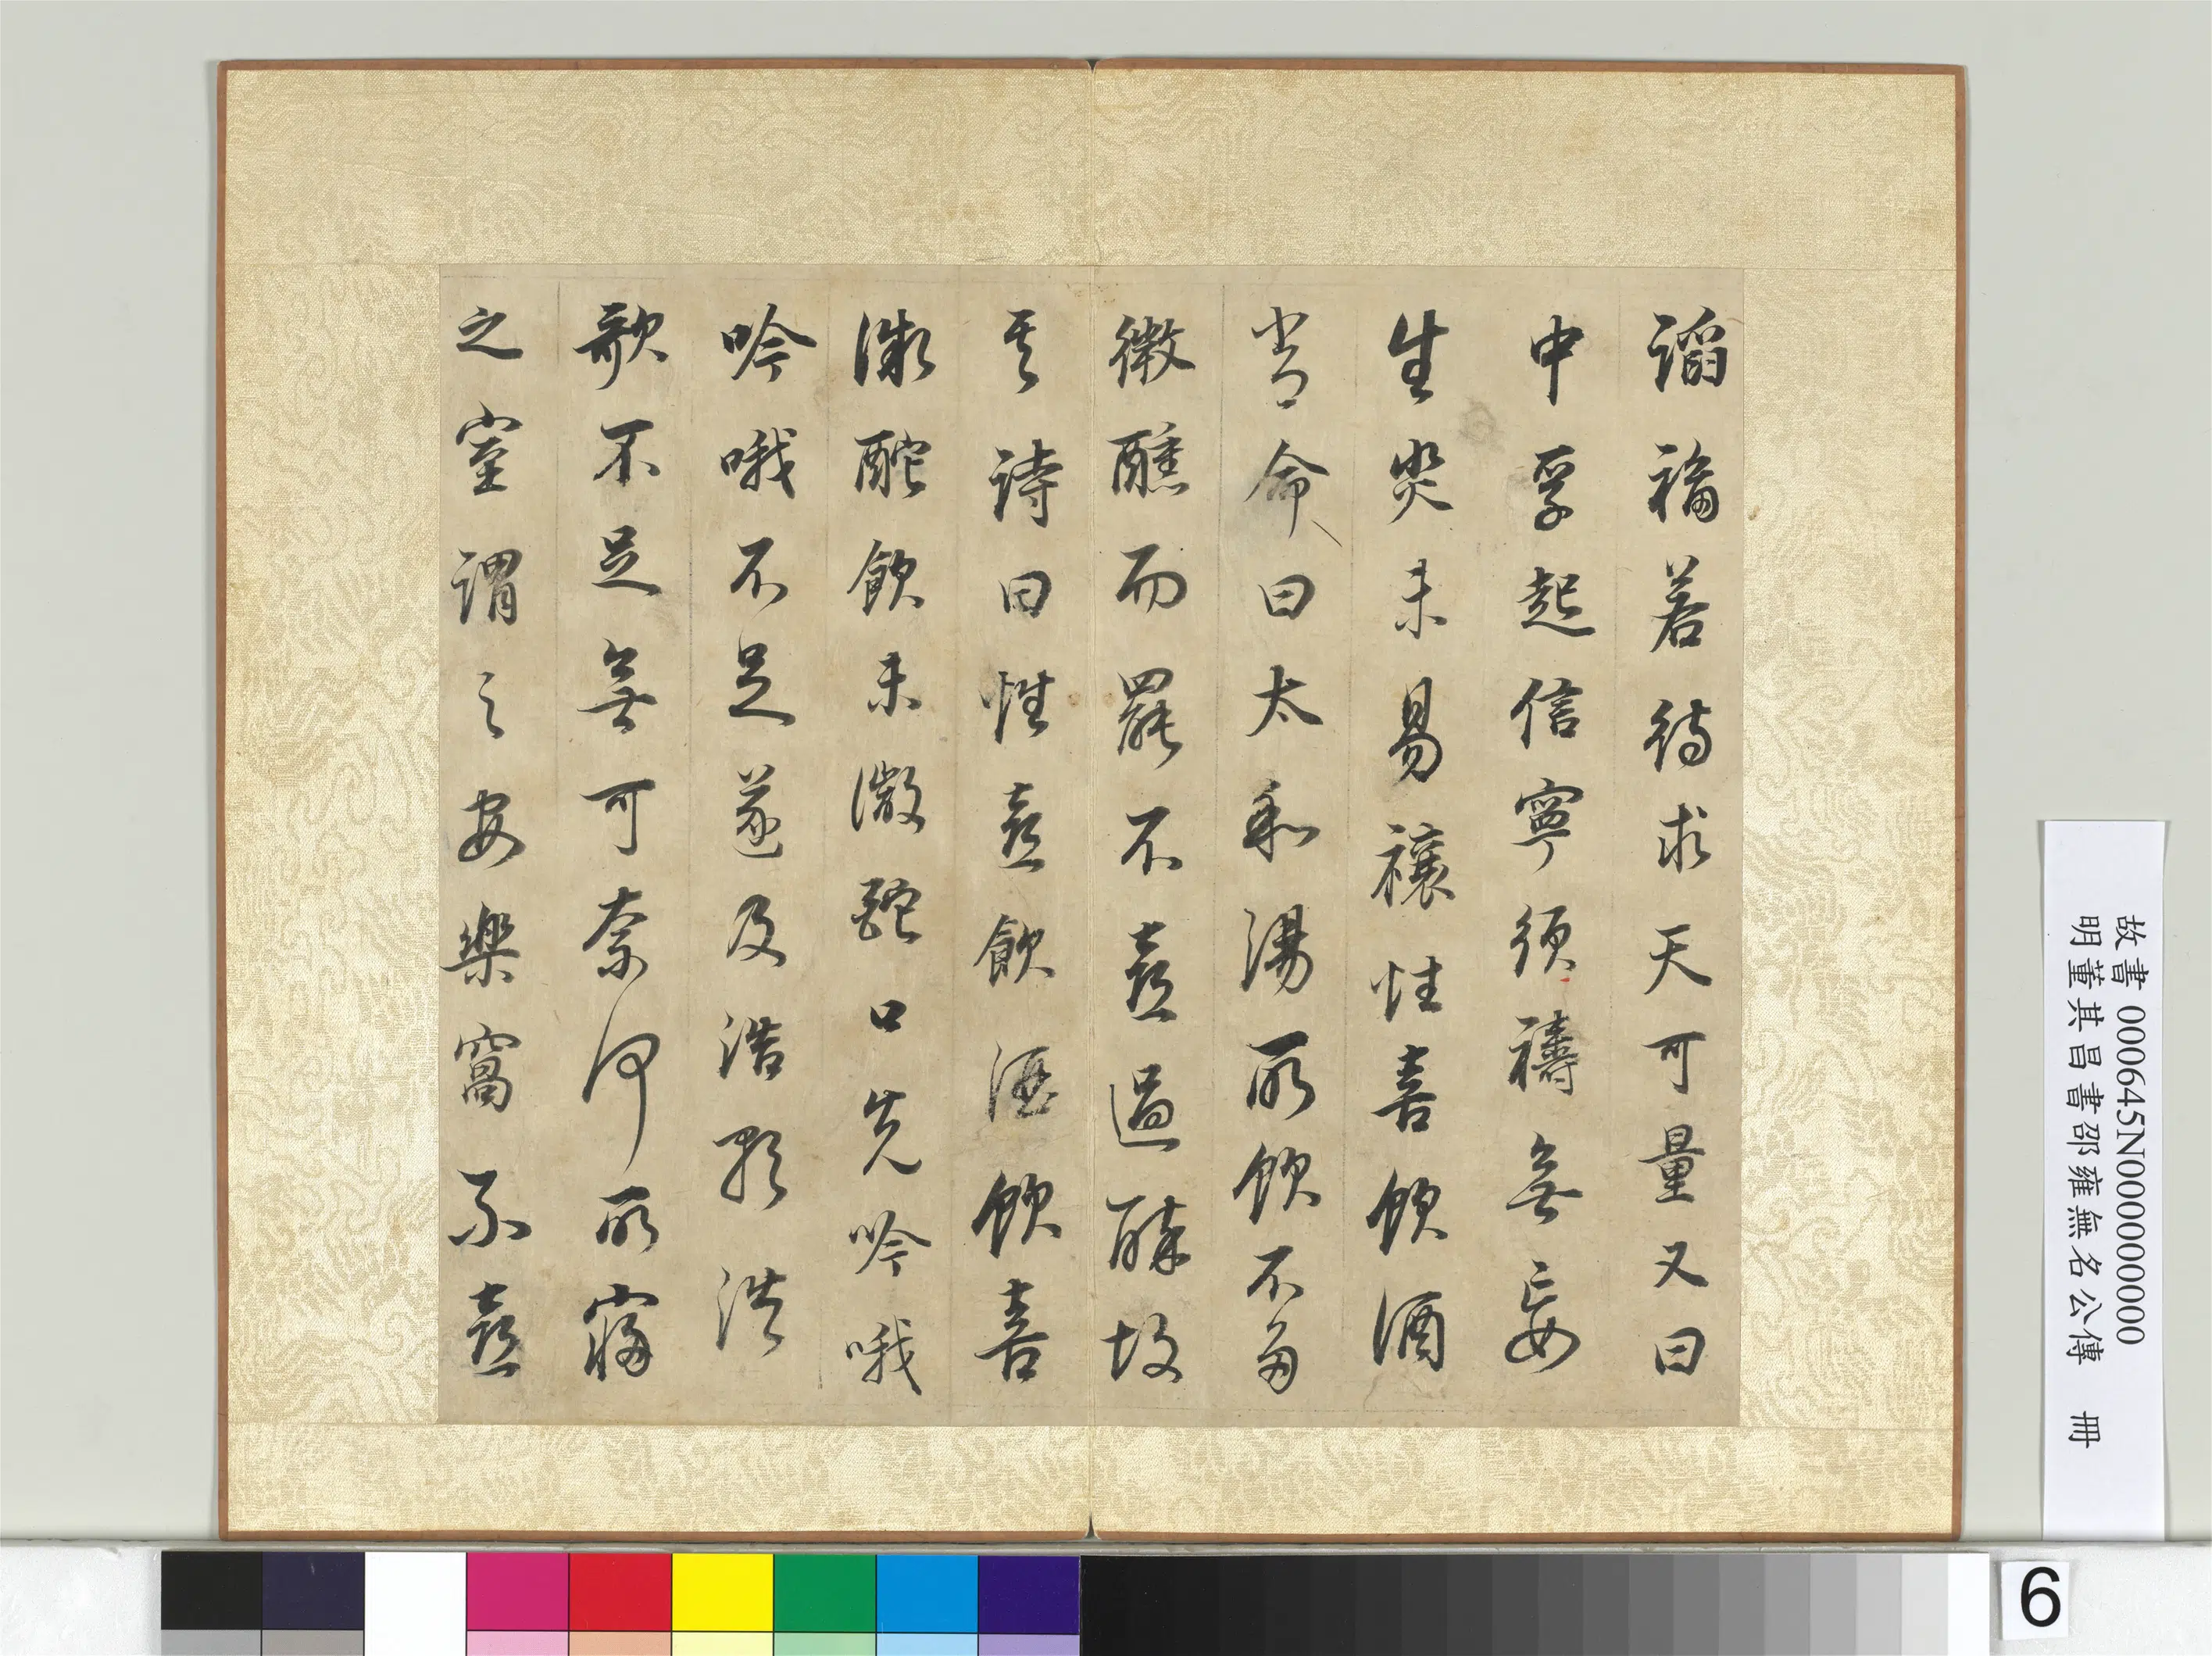 謟福若待求天可量又曰
中孚起信寧須禱無妄
生災未易禳性喜飲酒
嘗命曰太和湯所飲不多
微醺而罷不喜過醉故
其詩曰性喜飲酒飲喜
微酡飲未微酡口先吟哦
吟哦不足遂及浩歌浩
歌不足無可奈何所寢
之室謂之安樂窩不喜
故書 000645N000000000
明董其昌書邵雍無名公傳 冊
6